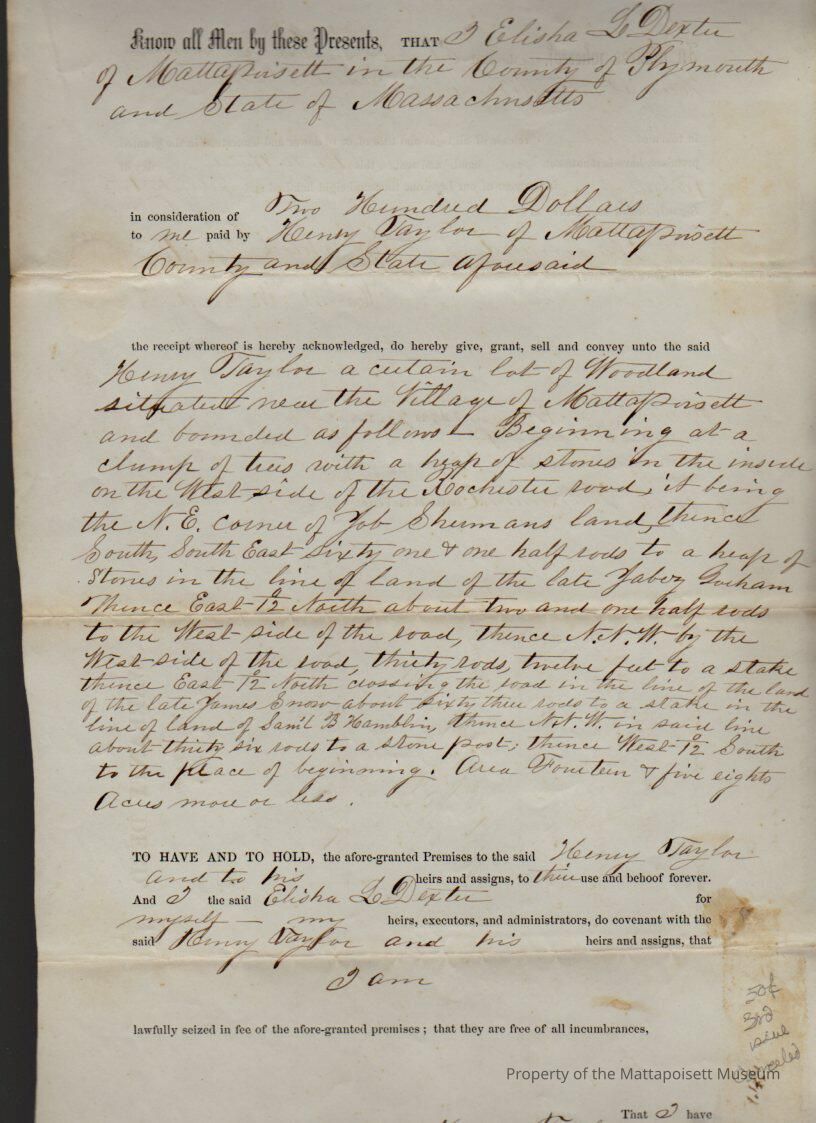 Know all Men by these Presents, THAT I Elisha L Dexter
of Mattapoisett in the County of Plymouth
and State of Massachusetts
in consideration of Two Hundred Dollars
to me paid by Henry Taylor of Mattapoisett
County and State aforesaid
the receipt whereof is hereby acknowledged, do hereby give, grant, sell and convey unto the said
Henry Taylor a certain lot of Woodland
situated near the Village of Mattapoisett
and bounded as follows Beginning at a
clump of trees with a heap of stones in the inside
on the West side of the Rochester road, it being
the N. E. corner of Job Shermans land, thence
South, South East sixty one & one half rods to a heap of
Stones in the line of land of the late Jabez Gorham
Thence East 12° North about two and one half rods
to the West side of the road, thence N.N.W. by the
West side of the road, thirty rods, twelve feet to a stake
thence East 12° North crossing the road in the line of the land
of the late James Snow about sixty three rods to a stake in the
line of land of Saml B Hamblin, thence N.N.W. in said line
about thirty six rods to a stone post; thence West 12° South
to the place of beginning. Area Fourteen & five eights
Acres more or less.
TO HAVE AND TO HOLD, the afore-granted Premises to the said Henry Taylor
and to his heirs and assigns, to their use and behoof forever.
And I the said Elisha L Dexter for
myself — my heirs, executors, and administrators, do covenant with the
said Henry Taylor and his heirs and assigns, that
I am
lawfully seized in fee of the afore-granted premises; that they are free of all incumbrances,
50¢
3rd
issue
canceled
Property of the Mattapoisett Museum
That I have